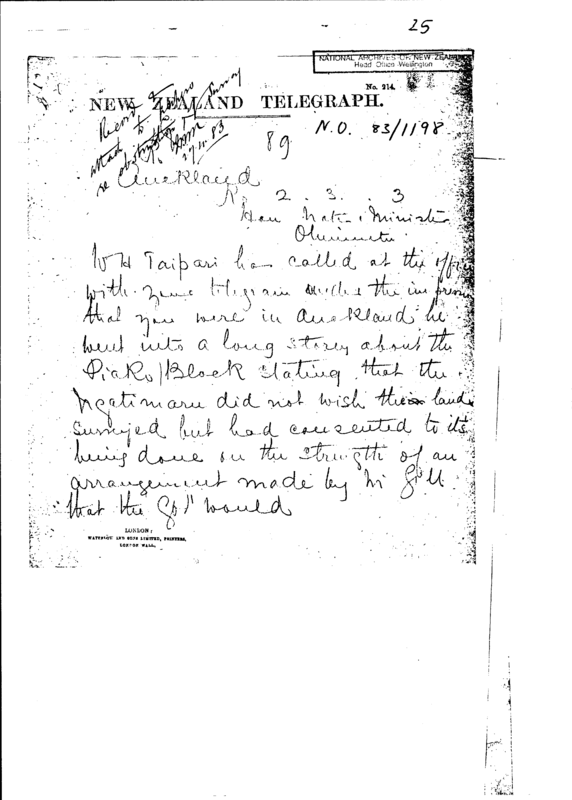 25
NATIONAL ARCHIVES OF NEW ZEALAND
Head Office Wellington
No. 214.
NEW ZEALAND TELEGRAPH.
N.O. 83/1198
89
Auckland
2. 3. 3
Hon Native Minister
W H Taipari has called at the office
with your telegram under the impression
that you were in Auckland he
went into a long storey about the
Piako Block stating that the
Ngatimaru did not wish their land
surveyed but had consented to its
being done on the strength of an
arrangement made by Mr Gill
that the Govt would
LONDON:
WATERLOW AND SONS LIMITED, PRINTERS,
LONDON WALL.